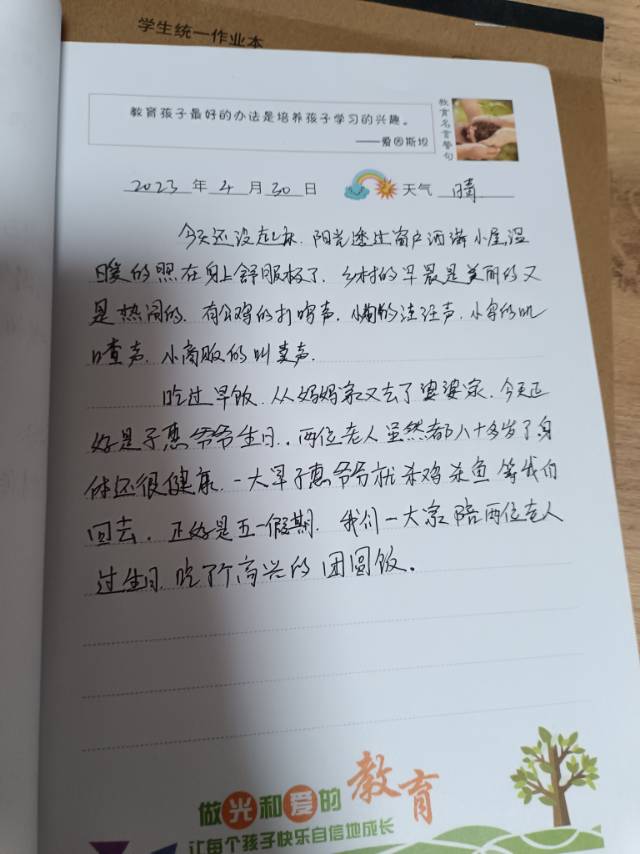 学生统一作业本
教育孩子最好的办法是培养孩子学习的兴趣。
——爱因斯坦
教育名言警句
2023年4月30日 天气 晴
今天还没起床，阳光透过窗户洒满小屋，温
暖的照在身上舒服极了，乡村的早晨是美丽的又
是热闹的，有公鸡的打鸣声，小狗的汪汪声，小鸟的叽
喳声，小商贩的叫卖声。
吃过早饭，从妈妈家又去了婆婆家，今天正
好是子惠爷爷生日，两位老人虽然都八十多岁了身
体还很健康，一大早子惠爷爷就杀鸡杀鱼等我们
回去，正好是五一假期，我们一大家陪两位老人
过生日，吃了个高兴的团圆饭。
做光和爱的教育
让每个孩子快乐自信地成长